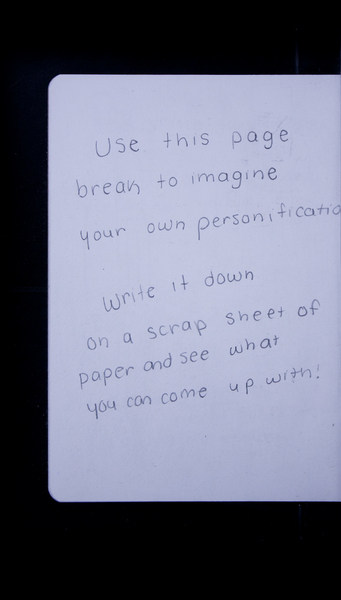 Use this page
break to imagine
your own personificatio
Write it down
on a scrap sheet of
paper and see what
you can come up with!